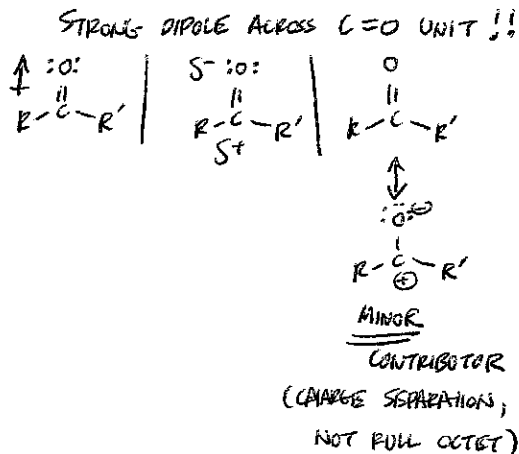 STRONG DIPOLE ACROSS C=O UNIT !!
:O: δ- :O: O
|| || ||
R-C-R' R-C-R' R-C-R'
δ+
:O:⊖
R-C-R'
⊕
MINOR
CONTRIBUTOR
(CHARGE SEPARATION,
NOT FULL OCTET)